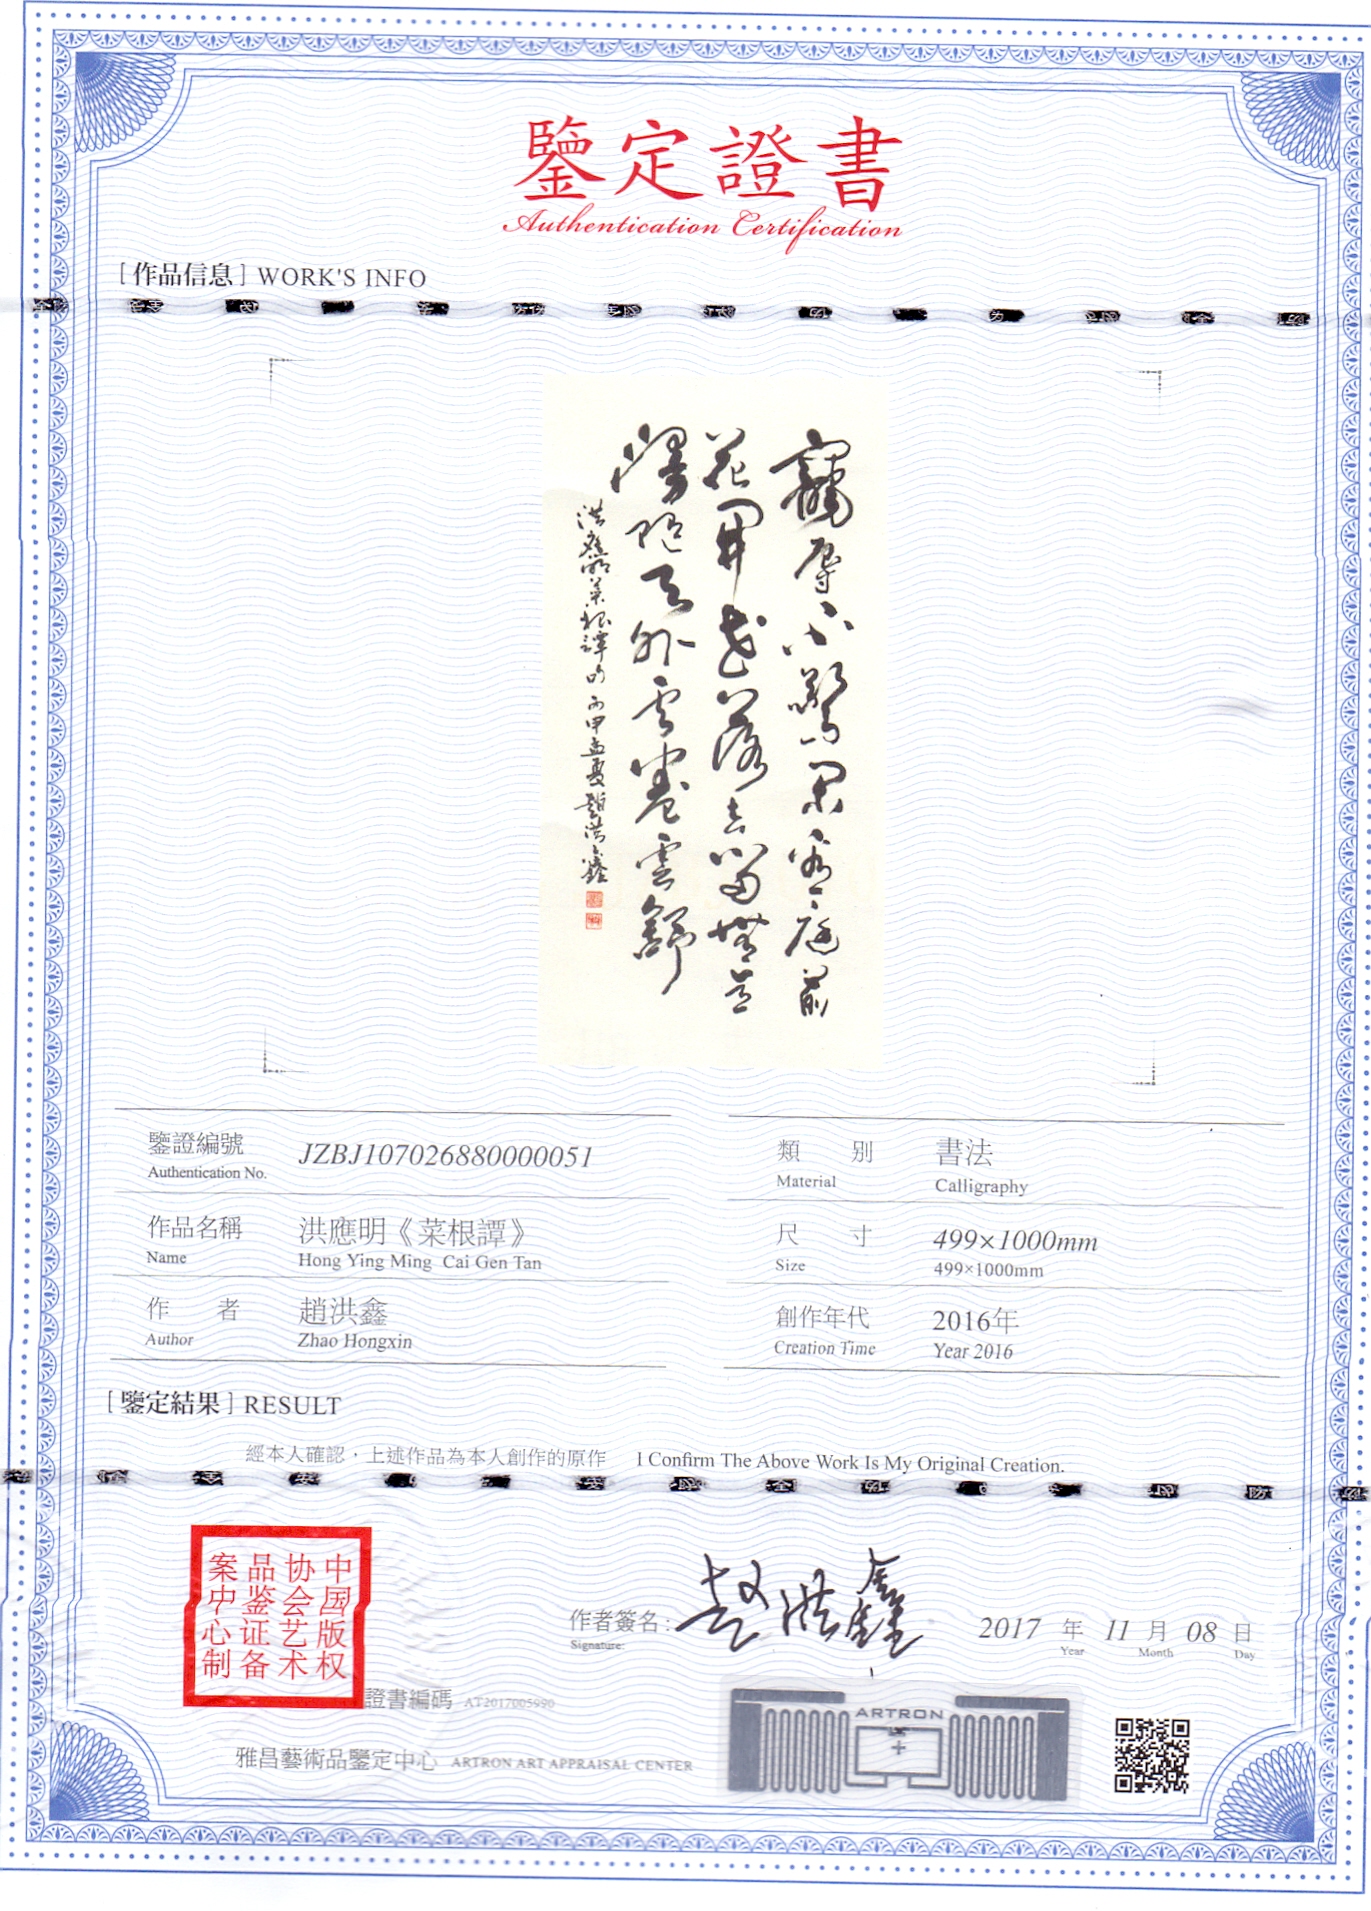 鑒定證書
Authentication Certification
[ 作品信息 ] WORK'S INFO
寵辱不驚閑看庭前
花開花落去留無意
漫隨天外雲卷雲舒
洪應明菜根譚句 丙申孟夏 趙洪鑫
鑒證編號 JZBJ107026880000051
Authentication No.
類別 書法
Material Calligraphy
作品名稱 洪應明《菜根譚》
Name Hong Ying Ming Cai Gen Tan
尺寸 499×1000mm
Size 499×1000mm
作者 趙洪鑫
Author Zhao Hongxin
創作年代 2016年
Creation Time Year 2016
[ 鑒定結果 ] RESULT
經本人確認，上述作品為本人創作的原作 I Confirm The Above Work Is My Original Creation.
中国版权
协会艺术
品鉴证备
案中心制
作者簽名: 趙洪鑫 2017 年 11 月 08 日
Signature: Year Month Day
證書編碼 AT2017005990
ARTRON
雅昌藝術品鑒定中心 ARTRON ART APPRAISAL CENTER